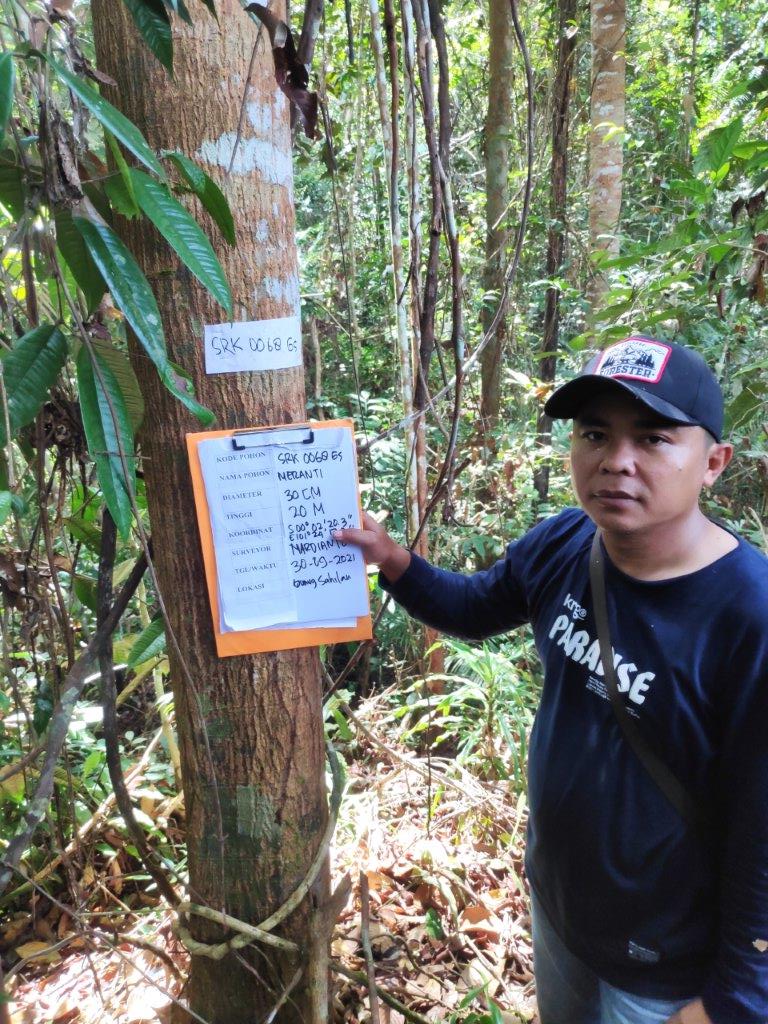 SRK 0068 Es
KODE POHON SRK 0068 Es
NAMA POHON MERANTI
DIAMETER 30 CM
TINGGI 20 M
KOORDINAT S 00° 02' 20.3"
E 101° 24'
SURVEYOR MARDIANTO
TGL/WAKTU 30-09-2021
LOKASI Gunung Sahilan
FORESTER
krg®
PARADISE